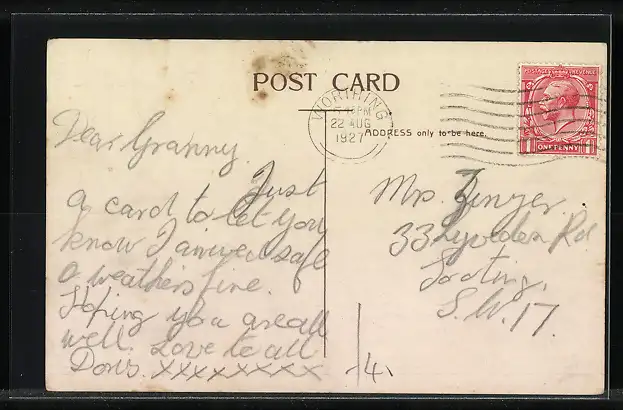 POST CARD
WORTHING
PM
22 AUG
1927
POSTAGE REVENUE
1 ONE PENNY 1
ADDRESS only to be here.
Dear Granny.
Just
a card to let you
know I arrived safe
& weathers fine.
Hoping you are all
well. Love to all
Doris. xxxxxxxxx
Mrs. Zinger
33 Lyolden Rd.
Tooting.
S.W. 17.
14